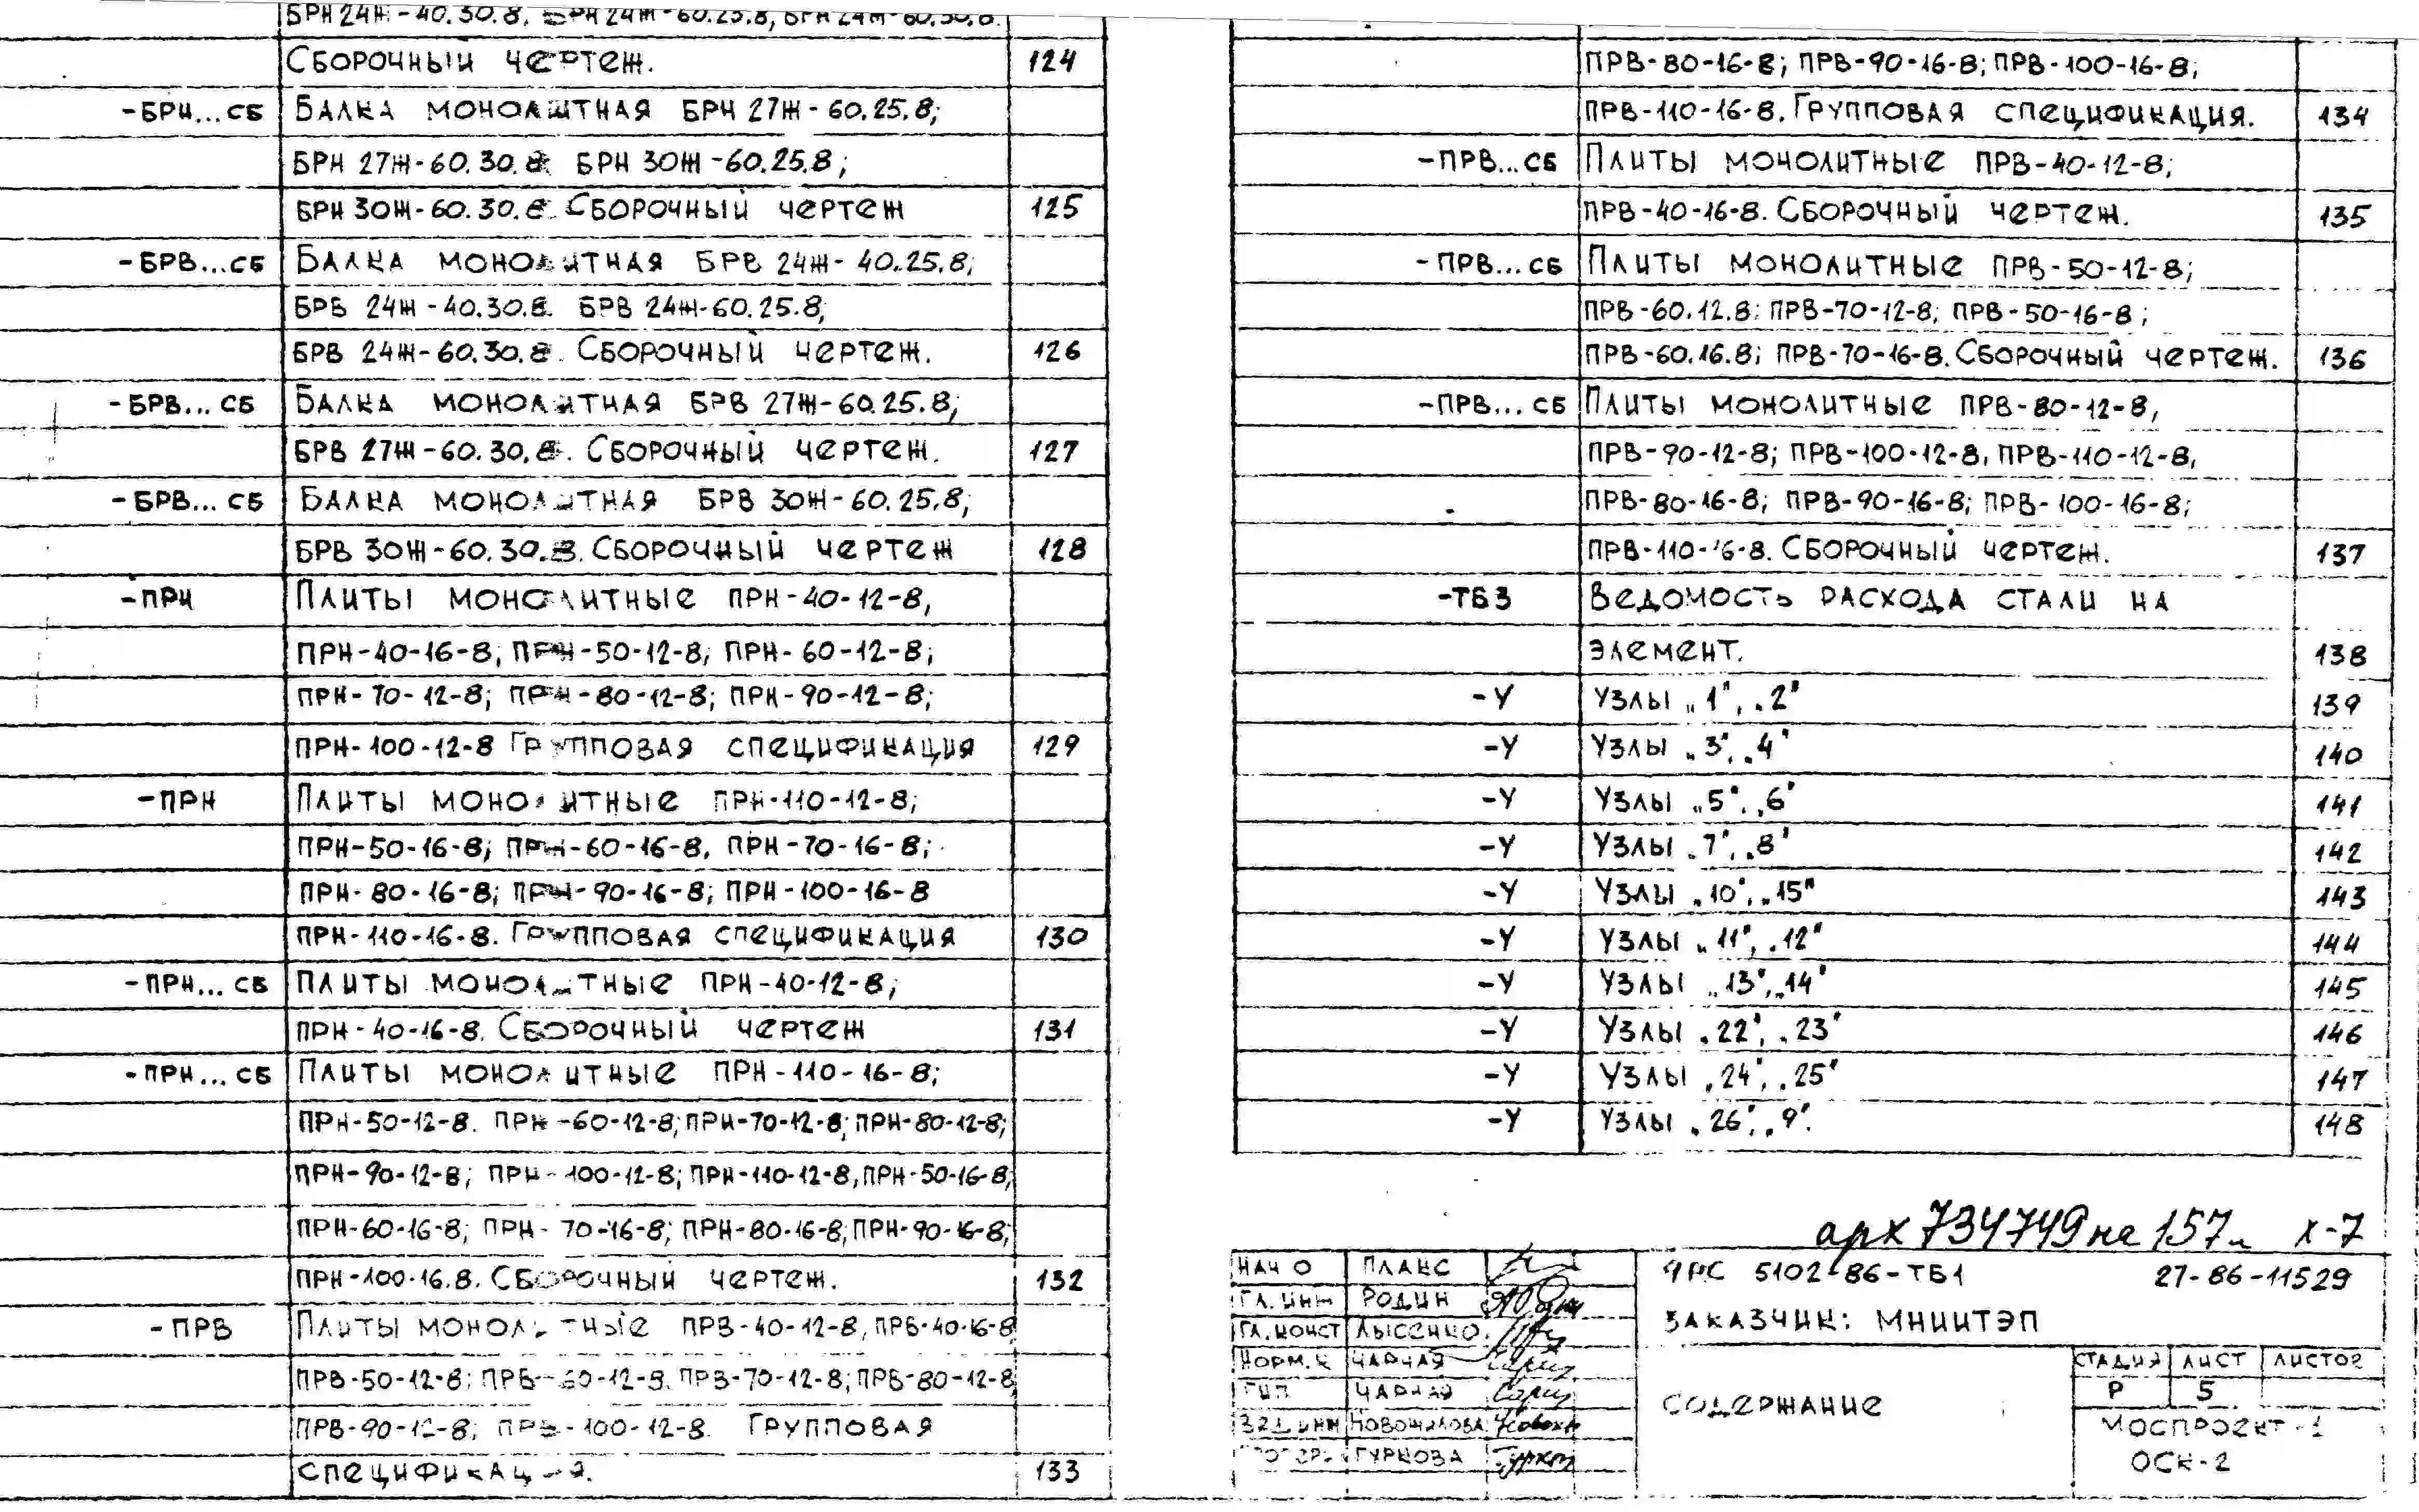 БРН 24Ж-40.30.8, БРН 24Ж-60.25.8, БРН 24Ж-60.30.8.
Сборочный чертеж. 124
-БРН...СБ Балка монолитная БРН 27Ж-60.25.8;
БРН 27Ж-60.30.8 БРН 30Ж-60.25.8;
БРН 30Ж-60.30.8. Сборочный чертеж 125
-БРВ...СБ Балка монолитная БРВ 24Ж-40.25.8;
БРВ 24Ж-40.30.8. БРВ 24Ж-60.25.8;
БРВ 24Ж-60.30.8. Сборочный чертеж. 126
-БРВ...СБ Балка монолитная БРВ 27Ж-60.25.8;
БРВ 27Ж-60.30.8. Сборочный чертеж. 127
-БРВ...СБ Балка монолитная БРВ 30Ж-60.25.8;
БРВ 30Ж-60.30.8. Сборочный чертеж 128
-ПРН Плиты монолитные ПРН-40-12-8,
ПРН-40-16-8, ПРН-50-12-8; ПРН-60-12-8;
ПРН-70-12-8; ПРН-80-12-8; ПРН-90-12-8;
ПРН-100-12-8 Групповая спецификация 129
-ПРН Плиты монолитные ПРН-110-12-8;
ПРН-50-16-8; ПРН-60-16-8, ПРН-70-16-8;
ПРН-80-16-8; ПРН-90-16-8; ПРН-100-16-8
ПРН-110-16-8. Групповая спецификация 130
-ПРН...СБ Плиты монолитные ПРН-40-12-8;
ПРН-40-16-8. Сборочный чертеж 131
-ПРН...СБ Плиты монолитные ПРН-110-16-8;
ПРН-50-12-8. ПРН-60-12-8; ПРН-70-12-8; ПРН-80-12-8;
ПРН-90-12-8; ПРН-100-12-8; ПРН-110-12-8, ПРН-50-16-8;
ПРН-60-16-8; ПРН-70-16-8; ПРН-80-16-8; ПРН-90-16-8;
ПРН-100-16.8. Сборочный чертеж. 132
-ПРВ Плиты монолитные ПРВ-40-12-8, ПРВ-40-16-8
ПРВ-50-12-8; ПРВ-60-12-8. ПРВ-70-12-8; ПРВ-80-12-8
ПРВ-90-12-8; ПРВ-100-12-8. Групповая
спецификация. 133
ПРВ-80-16-8; ПРВ-90-16-8; ПРВ-100-16-8;
ПРВ-110-16-8. Групповая спецификация. 134
-ПРВ...СБ Плиты монолитные ПРВ-40-12-8;
ПРВ-40-16-8. Сборочный чертеж. 135
-ПРВ...СБ Плиты монолитные ПРВ-50-12-8;
ПРВ-60.12.8; ПРВ-70-12-8; ПРВ-50-16-8;
ПРВ-60.16.8; ПРВ-70-16-8. Сборочный чертеж. 136
-ПРВ...СБ Плиты монолитные ПРВ-80-12-8,
ПРВ-90-12-8; ПРВ-100-12-8, ПРВ-110-12-8,
ПРВ-80-16-8; ПРВ-90-16-8; ПРВ-100-16-8;
ПРВ-110-16-8. Сборочный чертеж. 137
-ТБ3 Ведомость расхода стали на
элемент. 138
-У Узлы „1", „2" 139
-У Узлы „3", „4" 140
-У Узлы „5", „6" 141
-У Узлы „7", „8" 142
-У Узлы „10", „15" 143
-У Узлы „11", „12" 144
-У Узлы „13", „14" 145
-У Узлы „22", „23" 146
-У Узлы „24", „25" 147
-У Узлы „26", „9". 148
арх 734749 на 157л х-7
НАЧ О ПЛАКС
ГЛ. ИНЖ РОДИН
ГЛ. КОНСТ ЛЫСЕНКО.
НОРМ. К ЧАРНАЯ
ГИП ЧАРНАЯ
ИНЖ НОВОЖИЛОВА
ГУРКОВА
5102-86-ТБ1 27-86-11529
ЗАКАЗЧИК: МНИИТЭП
СОДЕРЖАНИЕ
СТАДИЯ ЛИСТ ЛИСТОВ
Р 5
МОСПРОЕКТ-1
ОСК-2